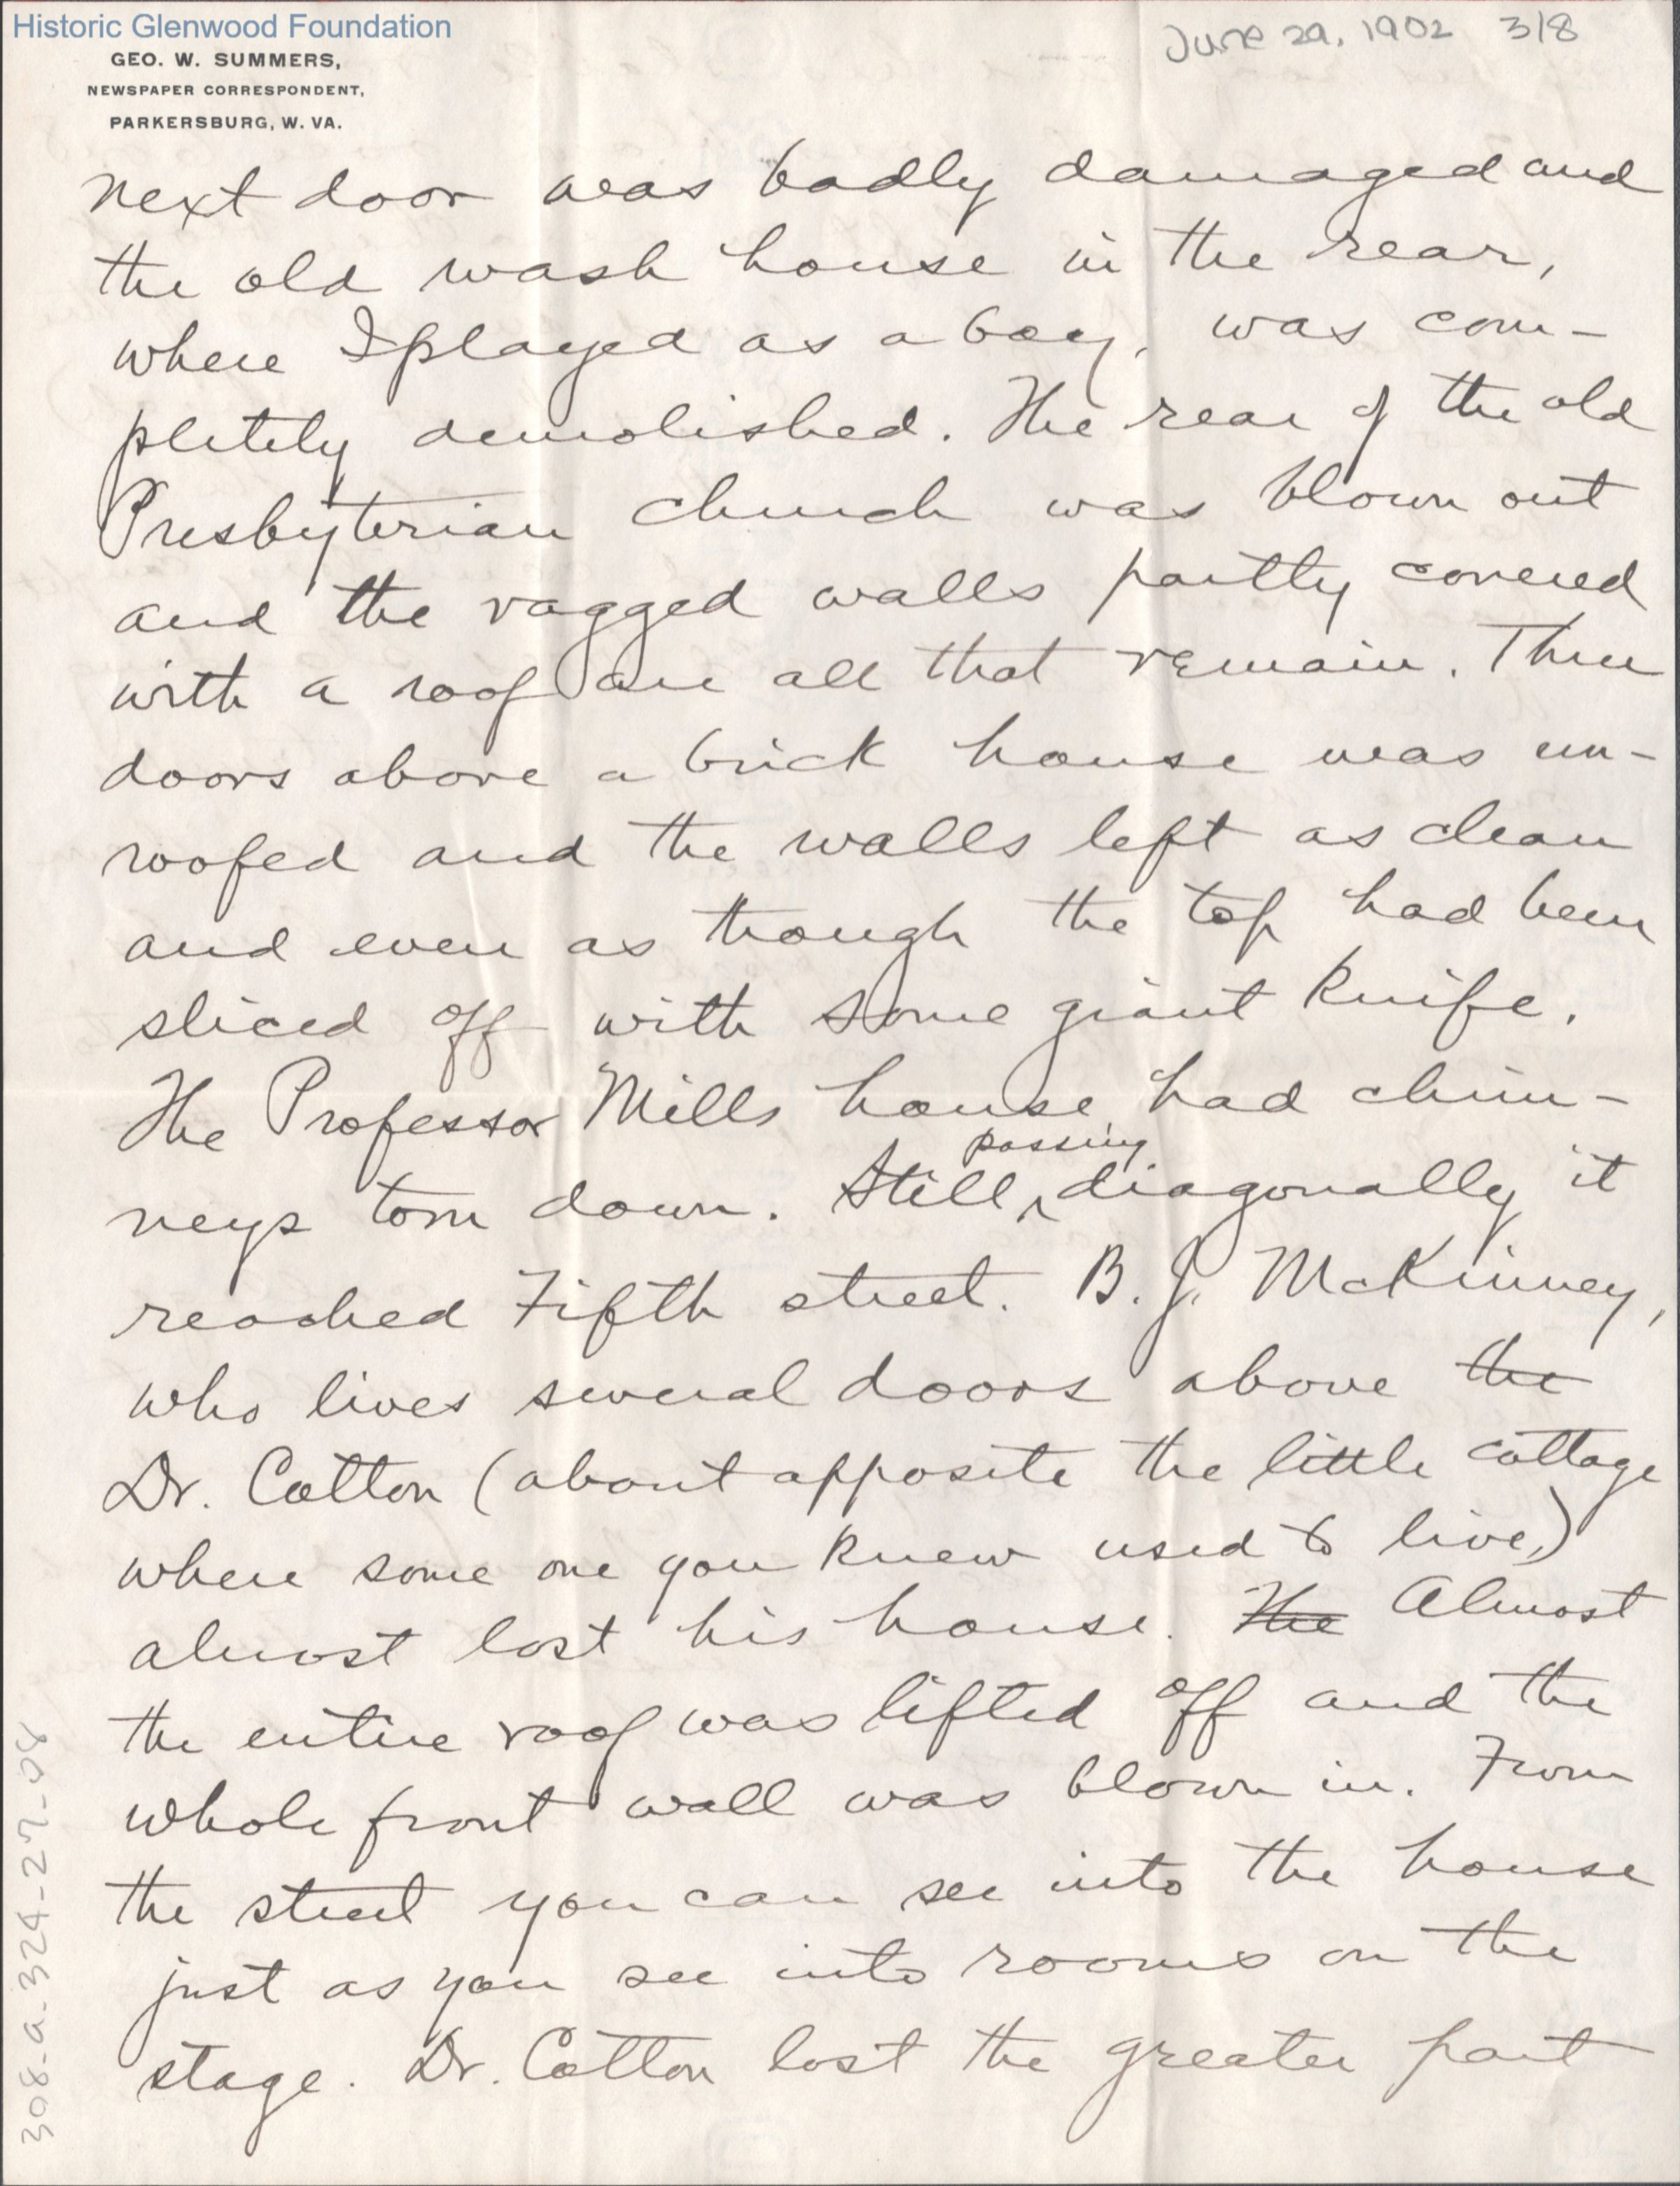 Historic Glenwood Foundation
June 29, 1902 3/8
GEO. W. SUMMERS,
NEWSPAPER CORRESPONDENT,
PARKERSBURG, W. VA.
next door was badly damaged and
the old wash house in the rear,
where I played as a boy, was com-
pletely demolished. The rear of the old
Presbyterian church was blown out
and the ragged walls partly covered
with a roof are all that remain. Three
doors above a brick house was un-
roofed and the walls left as clean
and even as though the top had been
sliced off with some giant knife.
The Professor Mills house had chim-
neys torn down. Still, passing diagonally it
reached Fifth street. B. J. McKinney,
who lives several doors above the
Dr. Cotton (about opposite the little cottage
where some one you knew used to live,)
almost lost his house. The Almost
the entire roof was lifted off and the
whole front wall was blown in. From
the street you can see into the house
just as you see into rooms on the
stage. Dr. Cotton lost the greater part
308-a.324-27-08